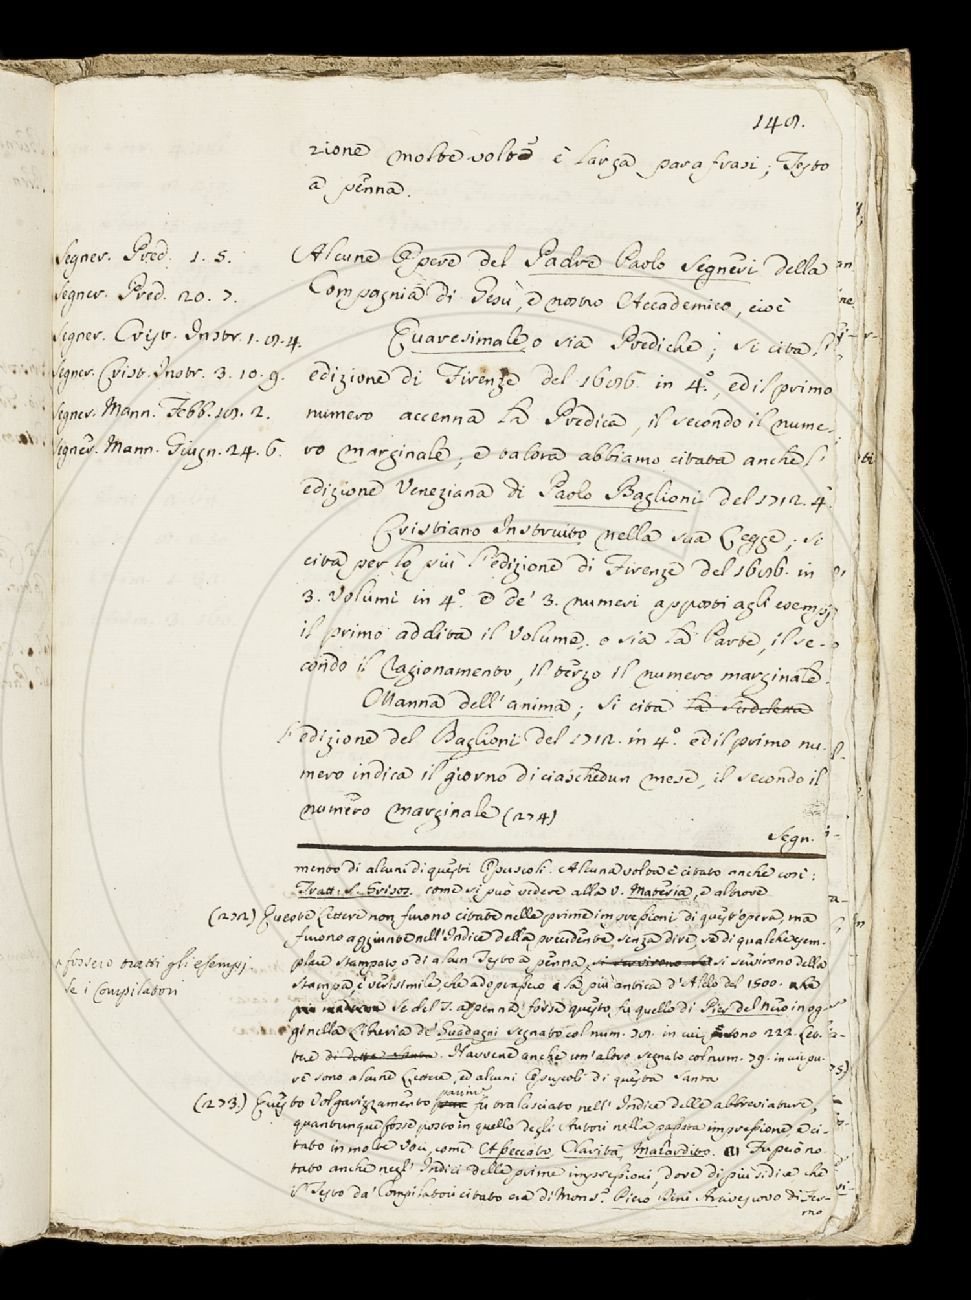 148.
zione molte volte è larga parafrasi; Testo
a penna.
Segner. Pred. 1. 5.
Segner. Pred. 20. 7.
Segner. Crist. Instr. 1. 8. 4.
Segner. Crist. Instr. 3. 10. 9.
Segner. Mann. Febb. 18. 2.
Segner. Mann. Giugn. 24. 6.
Alcune Opere del Padre Paolo Segneri della
Compagnia di Gesù, e nostro Accademico, cioè
Quaresimale o sia Prediche; si cita l'
edizione di Firenze del 1686. in 4.°, ed il primo
numero accenna la Predica, il secondo il nume-
ro marginale, e talora abbiamo citata anche l'
edizione Veneziana di Paolo Baglioni del 1712. 4.°
Cristiano Instruito nella sua Legge; si
cita per lo più l'edizione di Firenze del 1686. in
3. Volumi in 4.° e de' 3. numeri apposti agli esempj
il primo addita il Volume, o sia la Parte, il se-
condo il Ragionamento, il terzo il numero marginale.
Manna dell'anima; si cita la suddetta
l'edizione del Baglioni del 1712. in 4.° ed il primo nu-
mero indica il giorno di ciaschedun mese, il secondo il
numero marginale (274)
Segn.
mento di alcuni di questi Opuscoli. Alcuna volta è citato anche così:
Tratt. S. Grisoz. come si può vedere alla V. Materia, e altrove
(272) Queste Lettere non furono citate nelle prime impressioni di quest'opera, ma
furono aggiunte nell'Indice della precedente, senza dire, se di qualche esem-
plare stampato o di alcun Testo a penna, si servirono della
fossero tratti gli esempj
se i Compilatori
stampa, è verisimile, che adoprassero la più antica d'Aldo del 1500.
se del T. a penna, forse questo fu quello di Pier del Nero in og-
gi nella Libreria de' Guadagni segnato col num. 78. in cui sono 222. Let-
tere di detta Santa. Havvene anche un'altro segnato col num. 79. in cui pu-
re sono alcune Lettere, ed alcuni Opuscoli di questa Santa
(273) Questo Volgarizzamento fu tralasciato nell'Indice delle abbreviature,
quantunque fosse posto in quello degli Autori nella passata impressione, e ci-
tato in molte Voci, come Aspeccato, Clarità, Malardito. Fu però no-
tato anche negl'Indici delle prime impressioni, dove di più si dice che
il Testo da' Compilatori citato era di Mons.r Piero Dini Arcivescovo di Fer-
mo